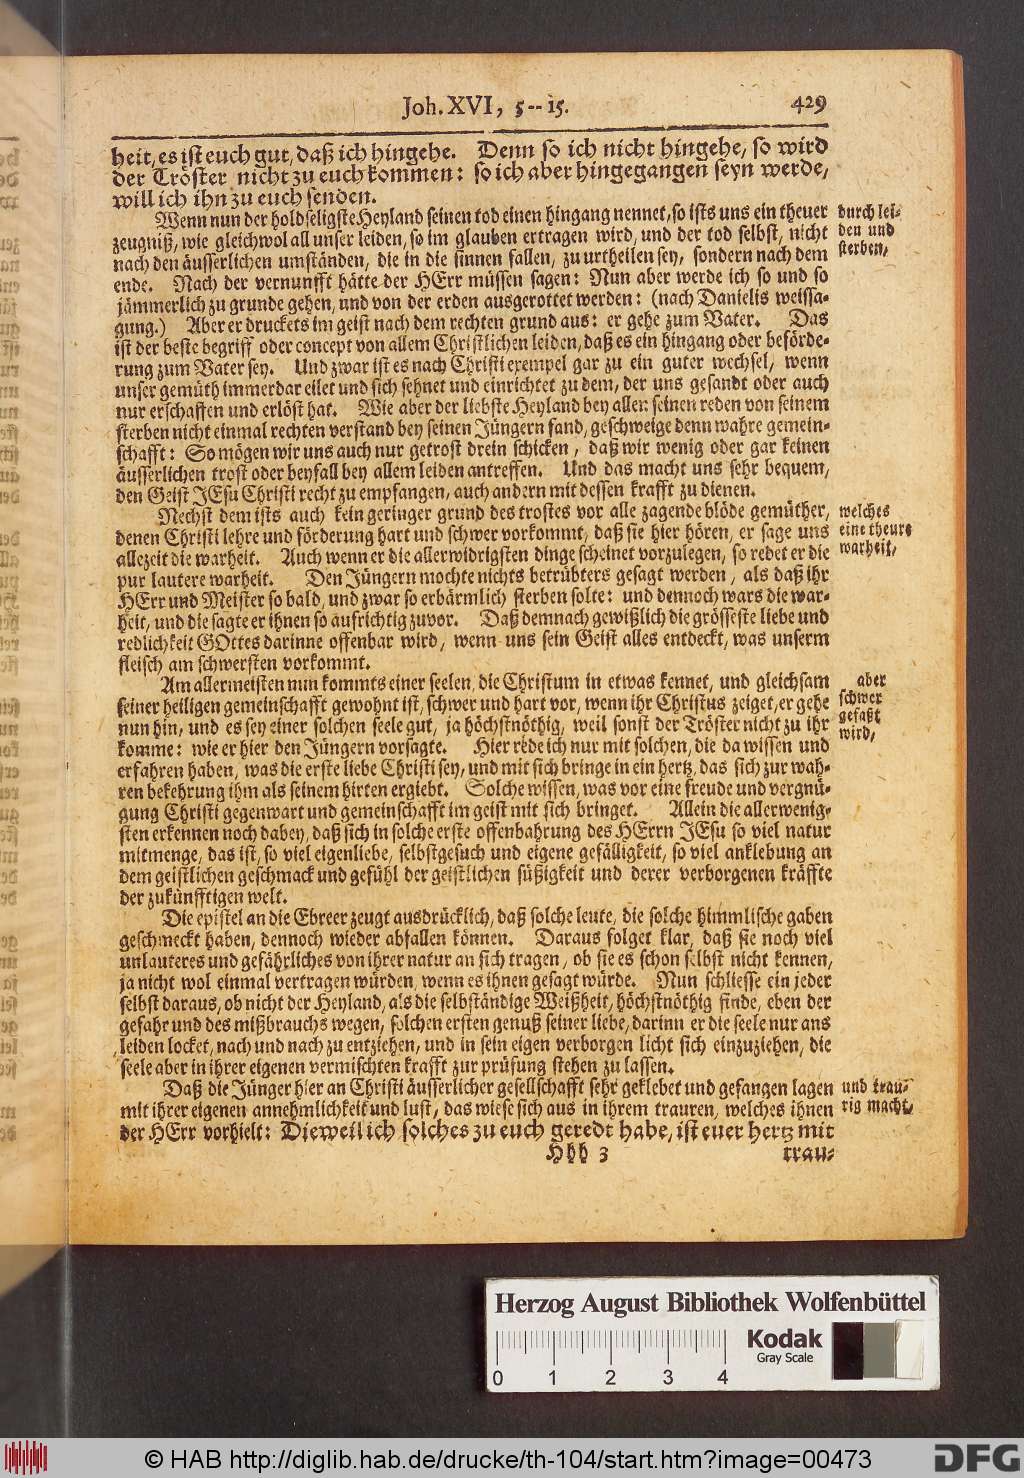 Joh. XVI, 5--15. 429
heit, es ist euch gut, daß ich hingehe. Denn so ich nicht hingehe, so wird
der Tröster nicht zu euch kommen: so ich aber hingegangen seyn werde,
will ich ihn zu euch senden.
Wenn nun der holdseligste Heyland seinen tod einen hingang nennet, so ists uns ein theuer
zeugniß, wie gleichwol all unser leiden, so im glauben ertragen wird, und der tod selbst, nicht
nach den äusserlichen umständen, die in die sinnen fallen, zu urtheilen sey, sondern nach dem
ende. Nach der vernunfft hätte der HErr müssen sagen: Nun aber werde ich so und so
jämmerlich zu grunde gehen, und von der erden ausgerottet werden: (nach Danielis weissa-
gung.) Aber er druckets im geist nach dem rechten grund aus: er gehe zum Vater. Das
ist der beste begriff oder concept von allem Christlichen leiden, daß es ein hingang oder beförde-
rung zum Vater sey. Und zwar ist es nach Christi exempel gar zu ein guter wechsel, wenn
unser gemüth immerdar eilet und sich sehnet und einrichtet zu dem, der uns gesandt oder auch
nur erschaffen und erlöst hat. Wie aber der liebste Heyland bey allen seinen reden von seinem
sterben nicht einmal rechten verstand bey seinen Jüngern fand, geschweige denn wahre gemein-
schafft: So mögen wir uns auch nur getrost drein schicken, daß wir wenig oder gar keinen
äusserlichen trost oder beyfall bey allem leiden antreffen. Und das macht uns sehr bequem,
den Geist JEsu Christi recht zu empfangen, auch andern mit dessen krafft zu dienen.
durch lei-
den und
sterben,
Nechst dem ists auch kein geringer grund des trostes vor alle zagende blöde gemüther,
denen Christi lehre und förderung hart und schwer vorkommt, daß sie hier hören, er sage uns
allezeit die warheit. Auch wenn er die allerwidrigsten dinge scheinet vorzulegen, so redet er die
pur lautere warheit. Den Jüngern mochte nichts betrübters gesagt werden, als daß ihr
HErr und Meister so bald, und zwar so erbärmlich sterben solte: und dennoch wars die war-
heit, und die sagte er ihnen so aufrichtig zuvor. Daß demnach gewißlich die grösseste liebe und
redlichkeit GOttes darinne offenbar wird, wenn uns sein Geist alles entdeckt, was unserm
fleisch am schwersten vorkommt.
welches
eine theure
warheit,
Am allermeisten nun kommts einer seelen, die Christum in etwas kennet, und gleichsam
seiner heiligen gemeinschafft gewohnt ist, schwer und hart vor, wenn ihr Christus zeiget, er gehe
nun hin, und es sey einer solchen seele gut, ja höchstnöthig, weil sonst der Tröster nicht zu ihr
komme: wie er hier den Jüngern vorsagte. Hier rede ich nur mit solchen, die da wissen und
erfahren haben, was die erste liebe Christi sey, und mit sich bringe in ein hertz, das sich zur wah-
ren bekehrung ihm als seinem hirten ergiebt. Solche wissen, was vor eine freude und vergnü-
gung Christi gegenwart und gemeinschafft im geist mit sich bringet. Allein die allerwenig-
sten erkennen noch dabey, daß sich in solche erste offenbahrung des HErrn JEsu so viel natur
mitmenge, das ist, so viel eigenliebe, selbstgesuch und eigene gefälligkeit, so viel anklebung an
dem geistlichen geschmack und gefühl der geistlichen süßigkeit und derer verborgenen kräffte
der zukünfftigen welt.
aber
schwer
gefaßt
wird,
Die epistel an die Ebreer zeugt ausdrücklich, daß solche leute, die solche himmlische gaben
geschmeckt haben, dennoch wieder abfallen können. Daraus folget klar, daß sie noch viel
unlauteres und gefährliches von ihrer natur an sich tragen, ob sie es schon selbst nicht kennen,
ja nicht wol einmal vertragen würden, wenn es ihnen gesagt würde. Nun schliesse ein jeder
selbst daraus, ob nicht der Heyland, als die selbständige Weißheit, höchstnöthig finde, eben der
gefahr und des mißbrauchs wegen, solchen ersten genuß seiner liebe, darinn er die seele nur ans
leiden locket, nach und nach zu entziehen, und in sein eigen verborgen licht sich einzuziehen, die
seele aber in ihrer eigenen vermischten krafft zur prüfung stehen zu lassen.
Daß die Jünger hier an Christi äusserlicher gesellschafft sehr geklebet und gefangen lagen
mit ihrer eigenen annehmlichkeit und lust, das wiese sich aus in ihrem trauren, welches ihnen
der HErr vorhielt: Dieweil ich solches zu euch geredt habe, ist euer hertz mit
und trau-
rig macht,
Hhh 3 trau-
Herzog August Bibliothek Wolfenbüttel
Kodak
Gray Scale
0 1 2 3 4
© HAB http://diglib.hab.de/drucke/th-104/start.htm?image=00473
DFG